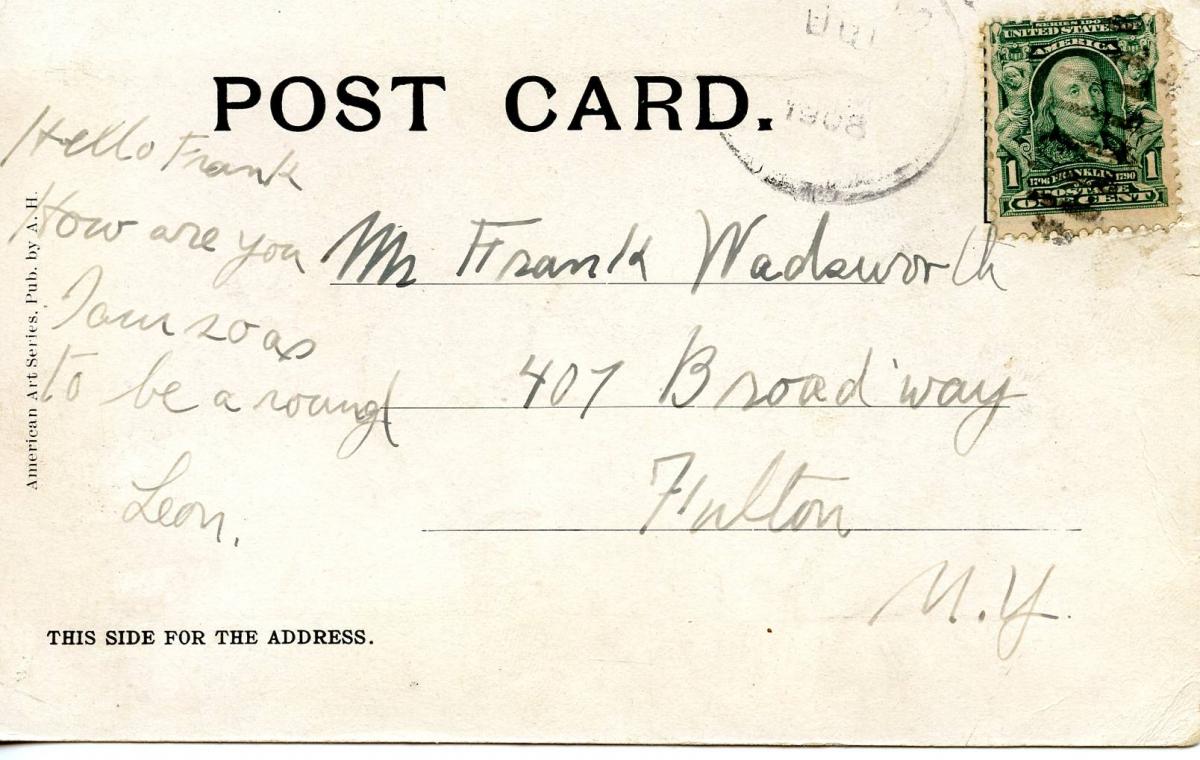 POST CARD.
1908
SERIES 1902
UNITED STATES OF
AMERICA
1 1
1706 FRANKLIN 1790
POSTAGE
ONE CENT
Hello Frank
How are you
I am so as
to be a round
Leon.
Mr Frank Wadsworth
407 Broadway
Fulton
N.Y.
American Art Series, Pub. by A. H.
THIS SIDE FOR THE ADDRESS.